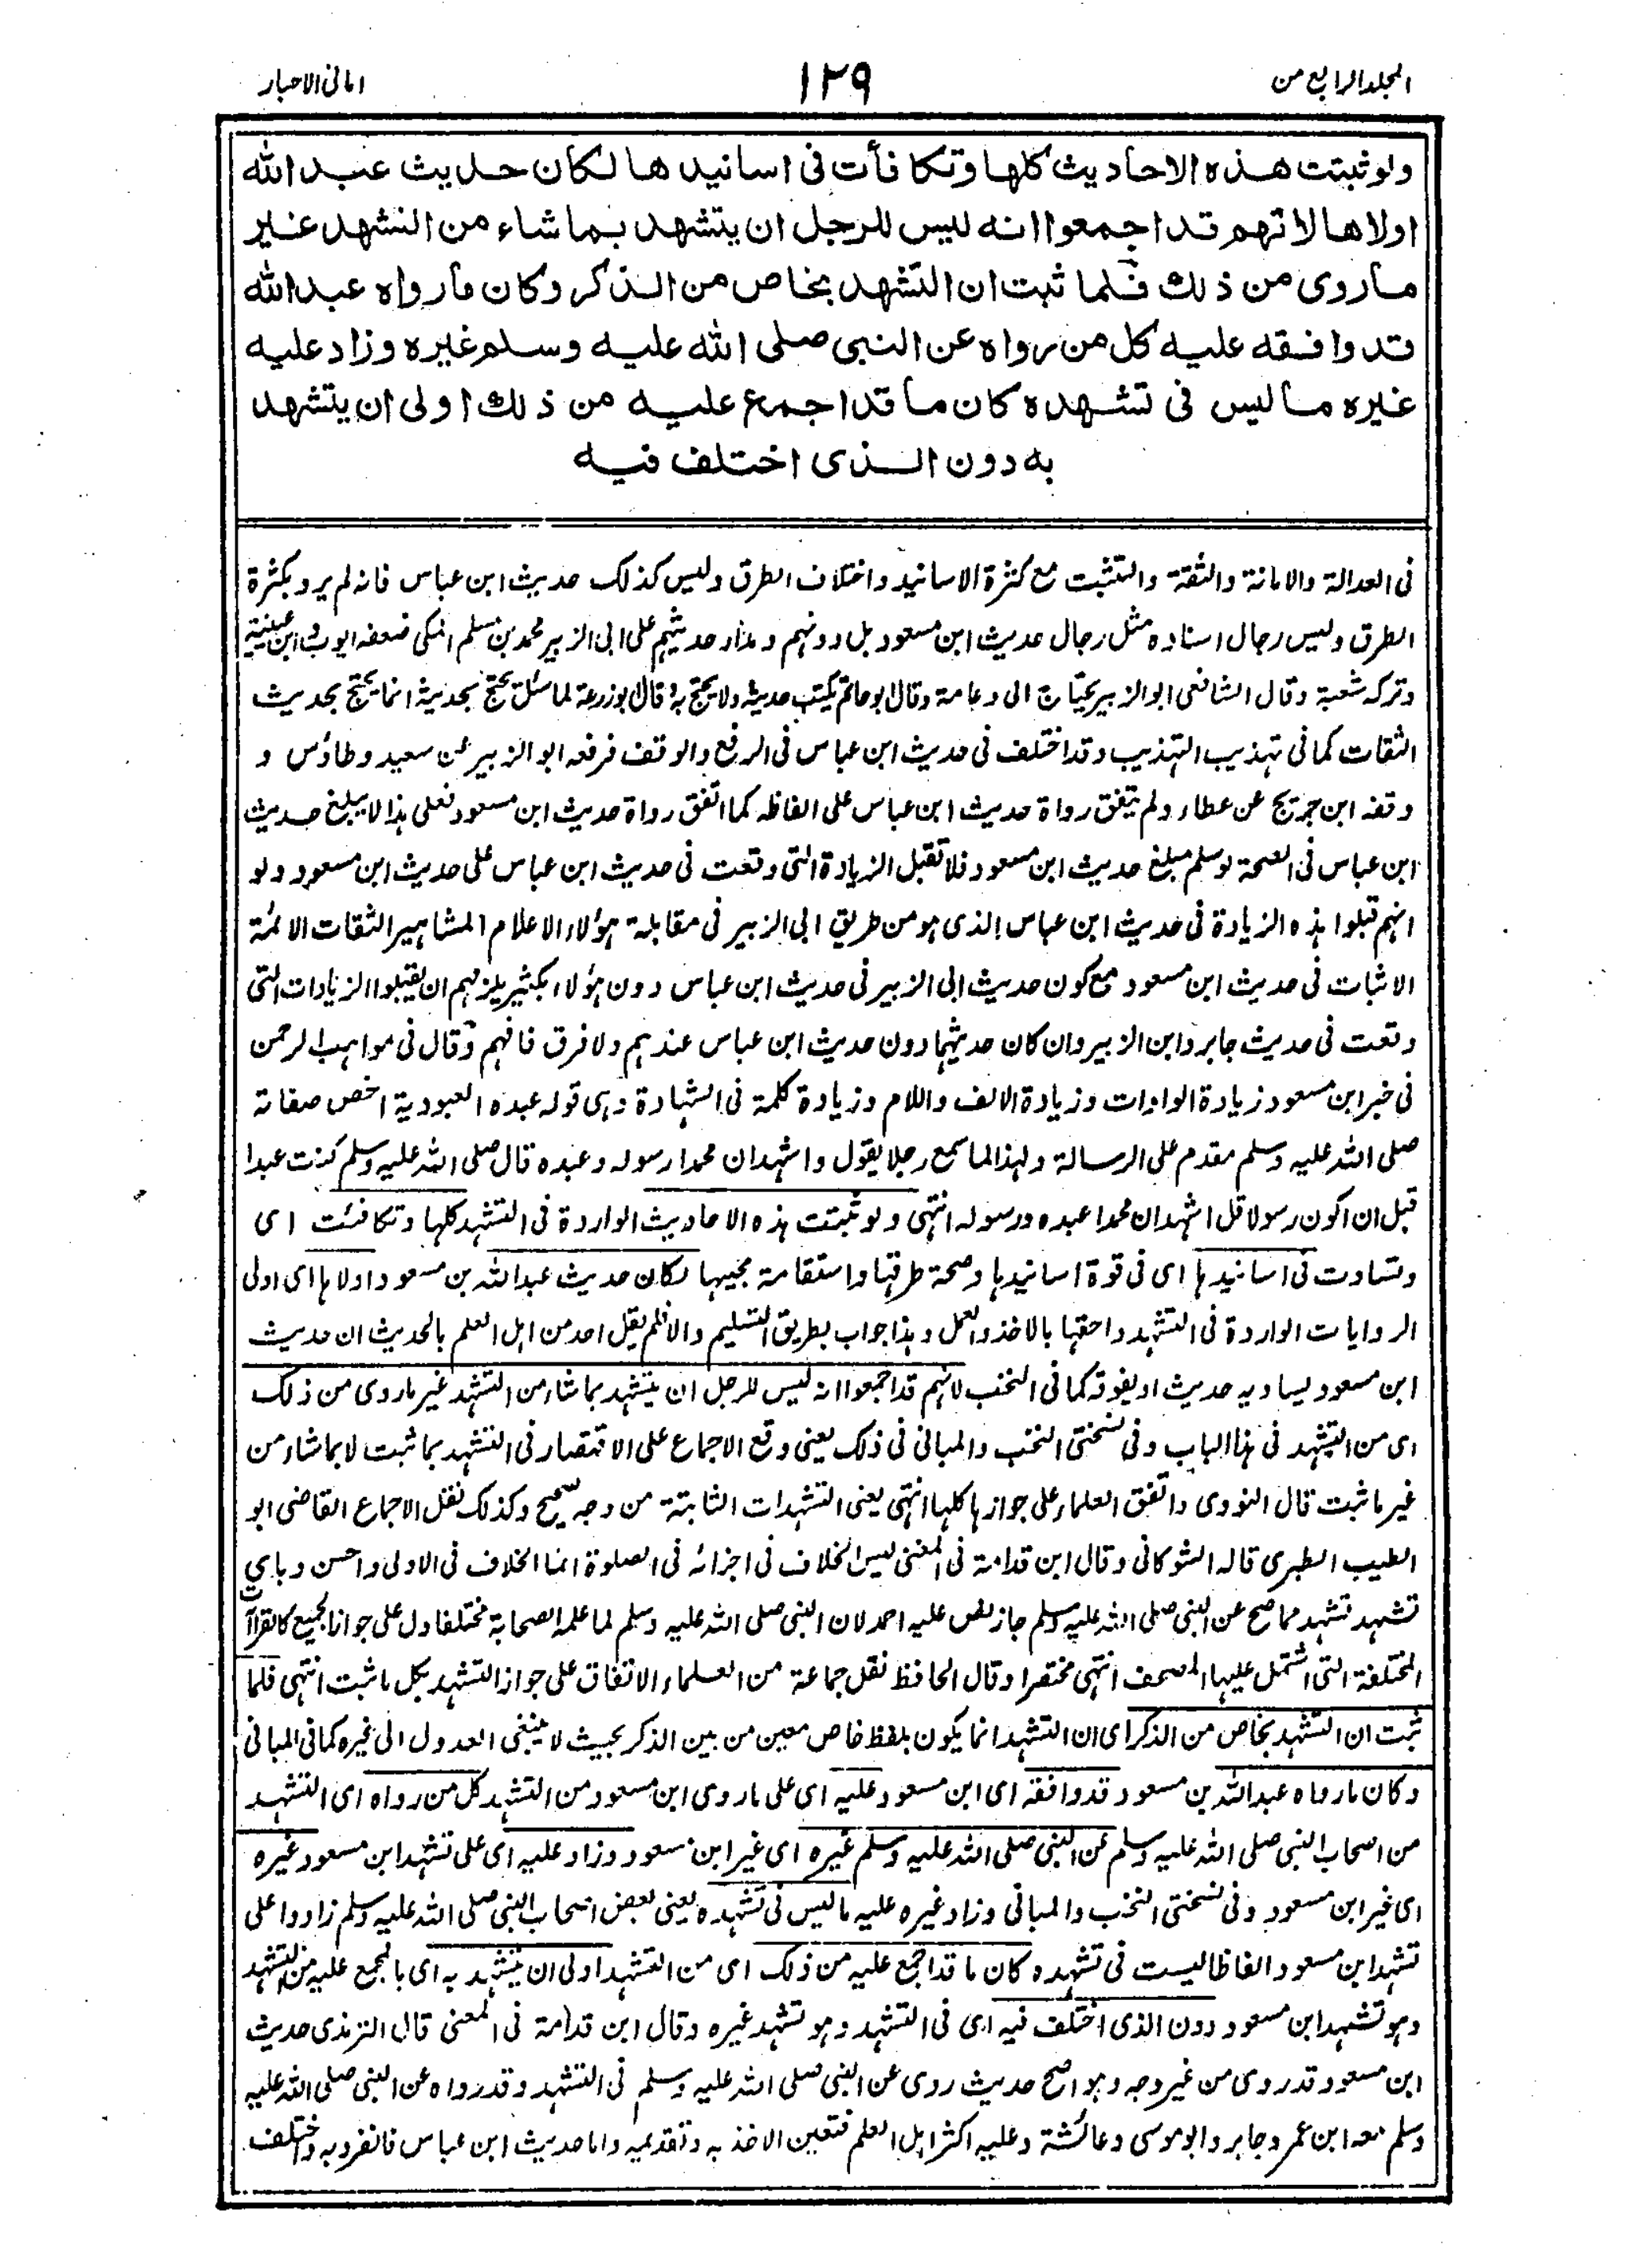 المجلد الرابع من
١٢٩
امانی الاحبار
ولو ثبتت هذه الاحاديث كلها وتكافأت فى اسانيدها لكان حديث عبد الله
اولاها لانهم قد اجمعوا انه ليس للرجل ان يتشهد بما شاء من التشهد غير
ما روى من ذلك فلما ثبت ان التشهد بخاص من الذكر وكان ما رواه عبد الله
قد وافقه عليه كل من رواه عن النبى صلى الله عليه وسلم غيره وزاد عليه
غيره ما ليس فى تشهده كان ما قد اجمع عليه من ذلك اولى ان يتشهد
به دون الذى اختلف فيه
فی العدالة والامانة والثقة والتثبت مع كثرة الاسانيد واختلاف الطرق وليس كذلك حديث ابن عباس فانه لم يرو بكثرة
الطرق وليس رجال اسناده مثل رجال حديث ابن مسعود بل دونهم ومدار حديثهم على ابی الزبير محمد بن مسلم المکی ضعفه ايوب وابن عيينة
وتركه شعبة وقال الشافعی ابو الزبير يحتاج الى دعامة وقال ابو حاتم يكتب حديثه ولا يحتج به وقال ابو زرعة لما سئل يحتج بحديثه انما يحتج بحديث
الثقات كما فی تهذيب التهذيب وقد اختلف فی حديث ابن عباس فی الرفع والوقف فرفعه ابو الزبير عن سعيد وطاؤس و
وقفه ابن جريج عن عطاء ولم يتفق رواة حديث ابن عباس على الفاظه كما اتفق رواة حديث ابن مسعود فعلى هذا لا يبلغ حديث
ابن عباس فی الصحة لو سلم مبلغ حديث ابن مسعود فلا تقبل الزيادة التی وقعت فی حديث ابن عباس على حديث ابن مسعود ولو
انهم قبلوا هذه الزيادة فی حديث ابن عباس الذی هو من طريق ابی الزبير فی مقابلة هؤلاء الاعلام المشاهير الثقات الائمة
الاثبات فی حديث ابن مسعود مع كون حديث ابی الزبير فی حديث ابن عباس دون هؤلاء بكثير يلزمهم ان يقبلوا الزيادات التی
وقعت فی حديث جابر وابن الزبير وان كان حديثهما دون حديث ابن عباس عندهم ولا فرق فافهم وقال فی مواهب الرحمن
فی خبر ابن مسعود زيادة الواوات وزيادة الالف واللام وزيادة كلمة فی الشهادة وهی قوله عبده العبودية اخص صفاته
صلى الله عليه وسلم مقدم على الرسالة ولهذا لما سمع رجلا يقول واشهد ان محمدا رسوله وعبده قال صلى الله عليه وسلم كنت عبدا
قبل ان اكون رسولا قل اشهد ان محمدا عبده ورسوله انتهى ولو ثبتت هذه الاحاديث الواردة فی التشهد كلها وتكافئت ای
وتساوت فی اسانيدها ای فی قوة اسانيدها وصحة طرقها واستقامة مجيبها لكان حديث عبد الله بن مسعود اولاها ای اولى
الروايات الواردة فی التشهد واحقها بالاخذ والعمل وهذا جواب بطريق التسليم والا فلم يقل احد من اهل العلم بالحديث ان حديث
ابن مسعود يساويه حديث او يفوته كما فی النخب لانهم قد اجمعوا انه ليس للرجل ان يتشهد بما شاء من التشهد غير ما روى من ذلك
ای من التشهد فی هذا الباب وفی نسختی النخب والمبانی فی ذلك يعنی وقع الاجماع على الاقتصار فی التشهد بما ثبت لا بما شاء من
غير ما ثبت قال النووی واتفق العلماء على جوازها كلها انتهى يعنی التشهدات الثابتة من وجه صحيح وكذلك نقل الاجماع القاضی ابو
الطيب الطبری قاله الشوكانی وقال ابن قدامة فی المغنی ليس الخلاف فی اجزائه فی الصلوة انما الخلاف فی الاولى واحسن وبای
تشهد تشهد مما صح عن النبی صلى الله عليه وسلم جاز نص عليه احمد لان النبی صلى الله عليه وسلم لما علمه الصحابة مختلفا دل على جواز الجميع كالقراآت
المختلفة التی اشتمل عليها المصحف انتهى مختصرا وقال الحافظ نقل جماعة من العلماء الاتفاق على جواز التشهد بكل ما ثبت انتهى فلما
ثبت ان التشهد بخاص من الذكر ای ان التشهد انما يكون بلفظ خاص معين من بين الذكر بحيث لا ينبغی العدول الى غيره كما فی المبانی
وكان ما رواه عبد الله بن مسعود قد وافقه ای ابن مسعود عليه ای على ما روى ابن مسعود من التشهد كل من رواه ای التشهد
من اصحاب النبی صلى الله عليه وسلم عن النبی صلى الله عليه وسلم غيره ای غير ابن مسعود وزاد عليه ای على تشهد ابن مسعود غيره
ای غير ابن مسعود وفی نسختی النخب والمبانی وزاد غيره عليه ما ليس فی تشهده يعنی بعض اصحاب النبی صلى الله عليه وسلم زادوا على
تشهد ابن مسعود الفاظا ليست فی تشهده كان ما قد اجمع عليه من ذلك ای من التشهد اولى ان يتشهد به ای بالمجمع عليه من التشهد
وهو تشهد ابن مسعود دون الذی اختلف فيه ای فی التشهد وهو تشهد غيره وقال ابن قدامة فی المغنی قال الترمذی حديث
ابن مسعود قد روى من غير وجه وهو اصح حديث روى عن النبی صلى الله عليه وسلم فی التشهد وقد رواه عن النبی صلى الله عليه
وسلم معه ابن عمر وجابر وابو موسى وعائشة وعليه اكثر اهل العلم فتعين الاخذ به وتقديمه واما حديث ابن عباس فانفرد به واختلف